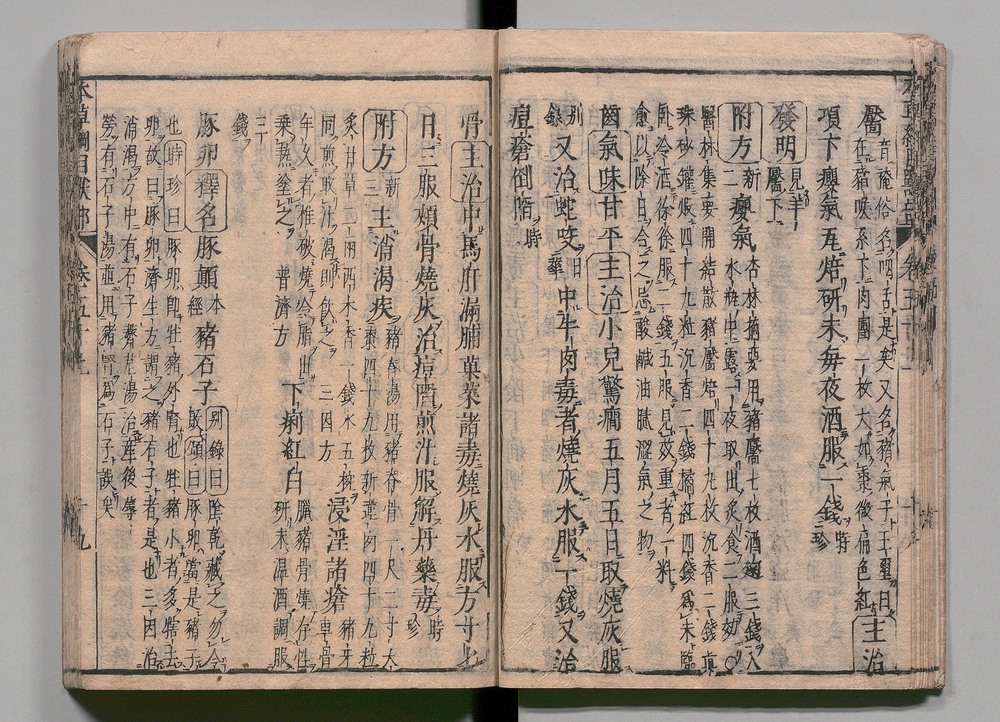 靨音掩俗名咽舌是矣又名豬氣子王璽曰
在豬喉系下肉團一枚大如棗微扁色紅主治
項下癭氣瓦焙研末每夜酒服一錢時珍
發明見羊靨下
附方新二癭氣杏林摘要用豬靨七枚酒熬三錢入
水瓶中露一夜取出炙食二服效○
醫林集要開結散豬靨焙四十九枚沉香二錢真
珠砂罐煅四十九粒沉香二錢橘紅四錢為末臨
臥冷酒徐徐服二錢五服見效重者一料
愈以除日合之忌酸鹹油膩澀氣之物
齒氣味甘平主治小兒驚癇五月五日取燒灰服
別錄又治蛇咬日華中牛肉毒者燒灰水服一錢又治
痘瘡倒陷時珍
骨主治中馬肝漏脯菓菜諸毒燒灰水服方寸匕
日三服頰骨燒灰治痘陷煎汁服解丹藥毒時珍
附方新三主消渴疾三因方
豬脊湯用豬脊骨一尺二寸大
棗四十九枚新蓮肉四十九粒
炙甘草二兩西木香一錢水五椀
同煎取汁渴則飲之浸淫諸瘡豬牙車骨
年久者椎破燒令脂出
乘熱塗之普濟方下痢紅白臘豬骨燒存性
研末溫酒調服
三錢
豚卵釋名豚顛本經豬石子別錄別錄曰陰乾藏之勿令
敗頌曰豚卵當是豬子
也時珍曰豚卵即牡豬外腎也牡豬小者多犗去
卵故曰豚卵濟生方謂之豬石子者是也三因治
消渴方中有石子薺苨湯治產後蓐
勞有石子湯並用豬腎為石子誤矣